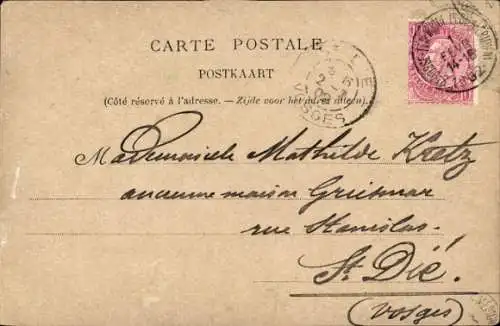 CARTE POSTALE
POSTKAART
(Côté réservé à l'adresse. – Zijde voor het adres alleen.)
VOSGES
Mademoiselle Mathilde Kretz
ancienne maison Griesmar
rue Stanislas.
St. Dié.
(Vosges)